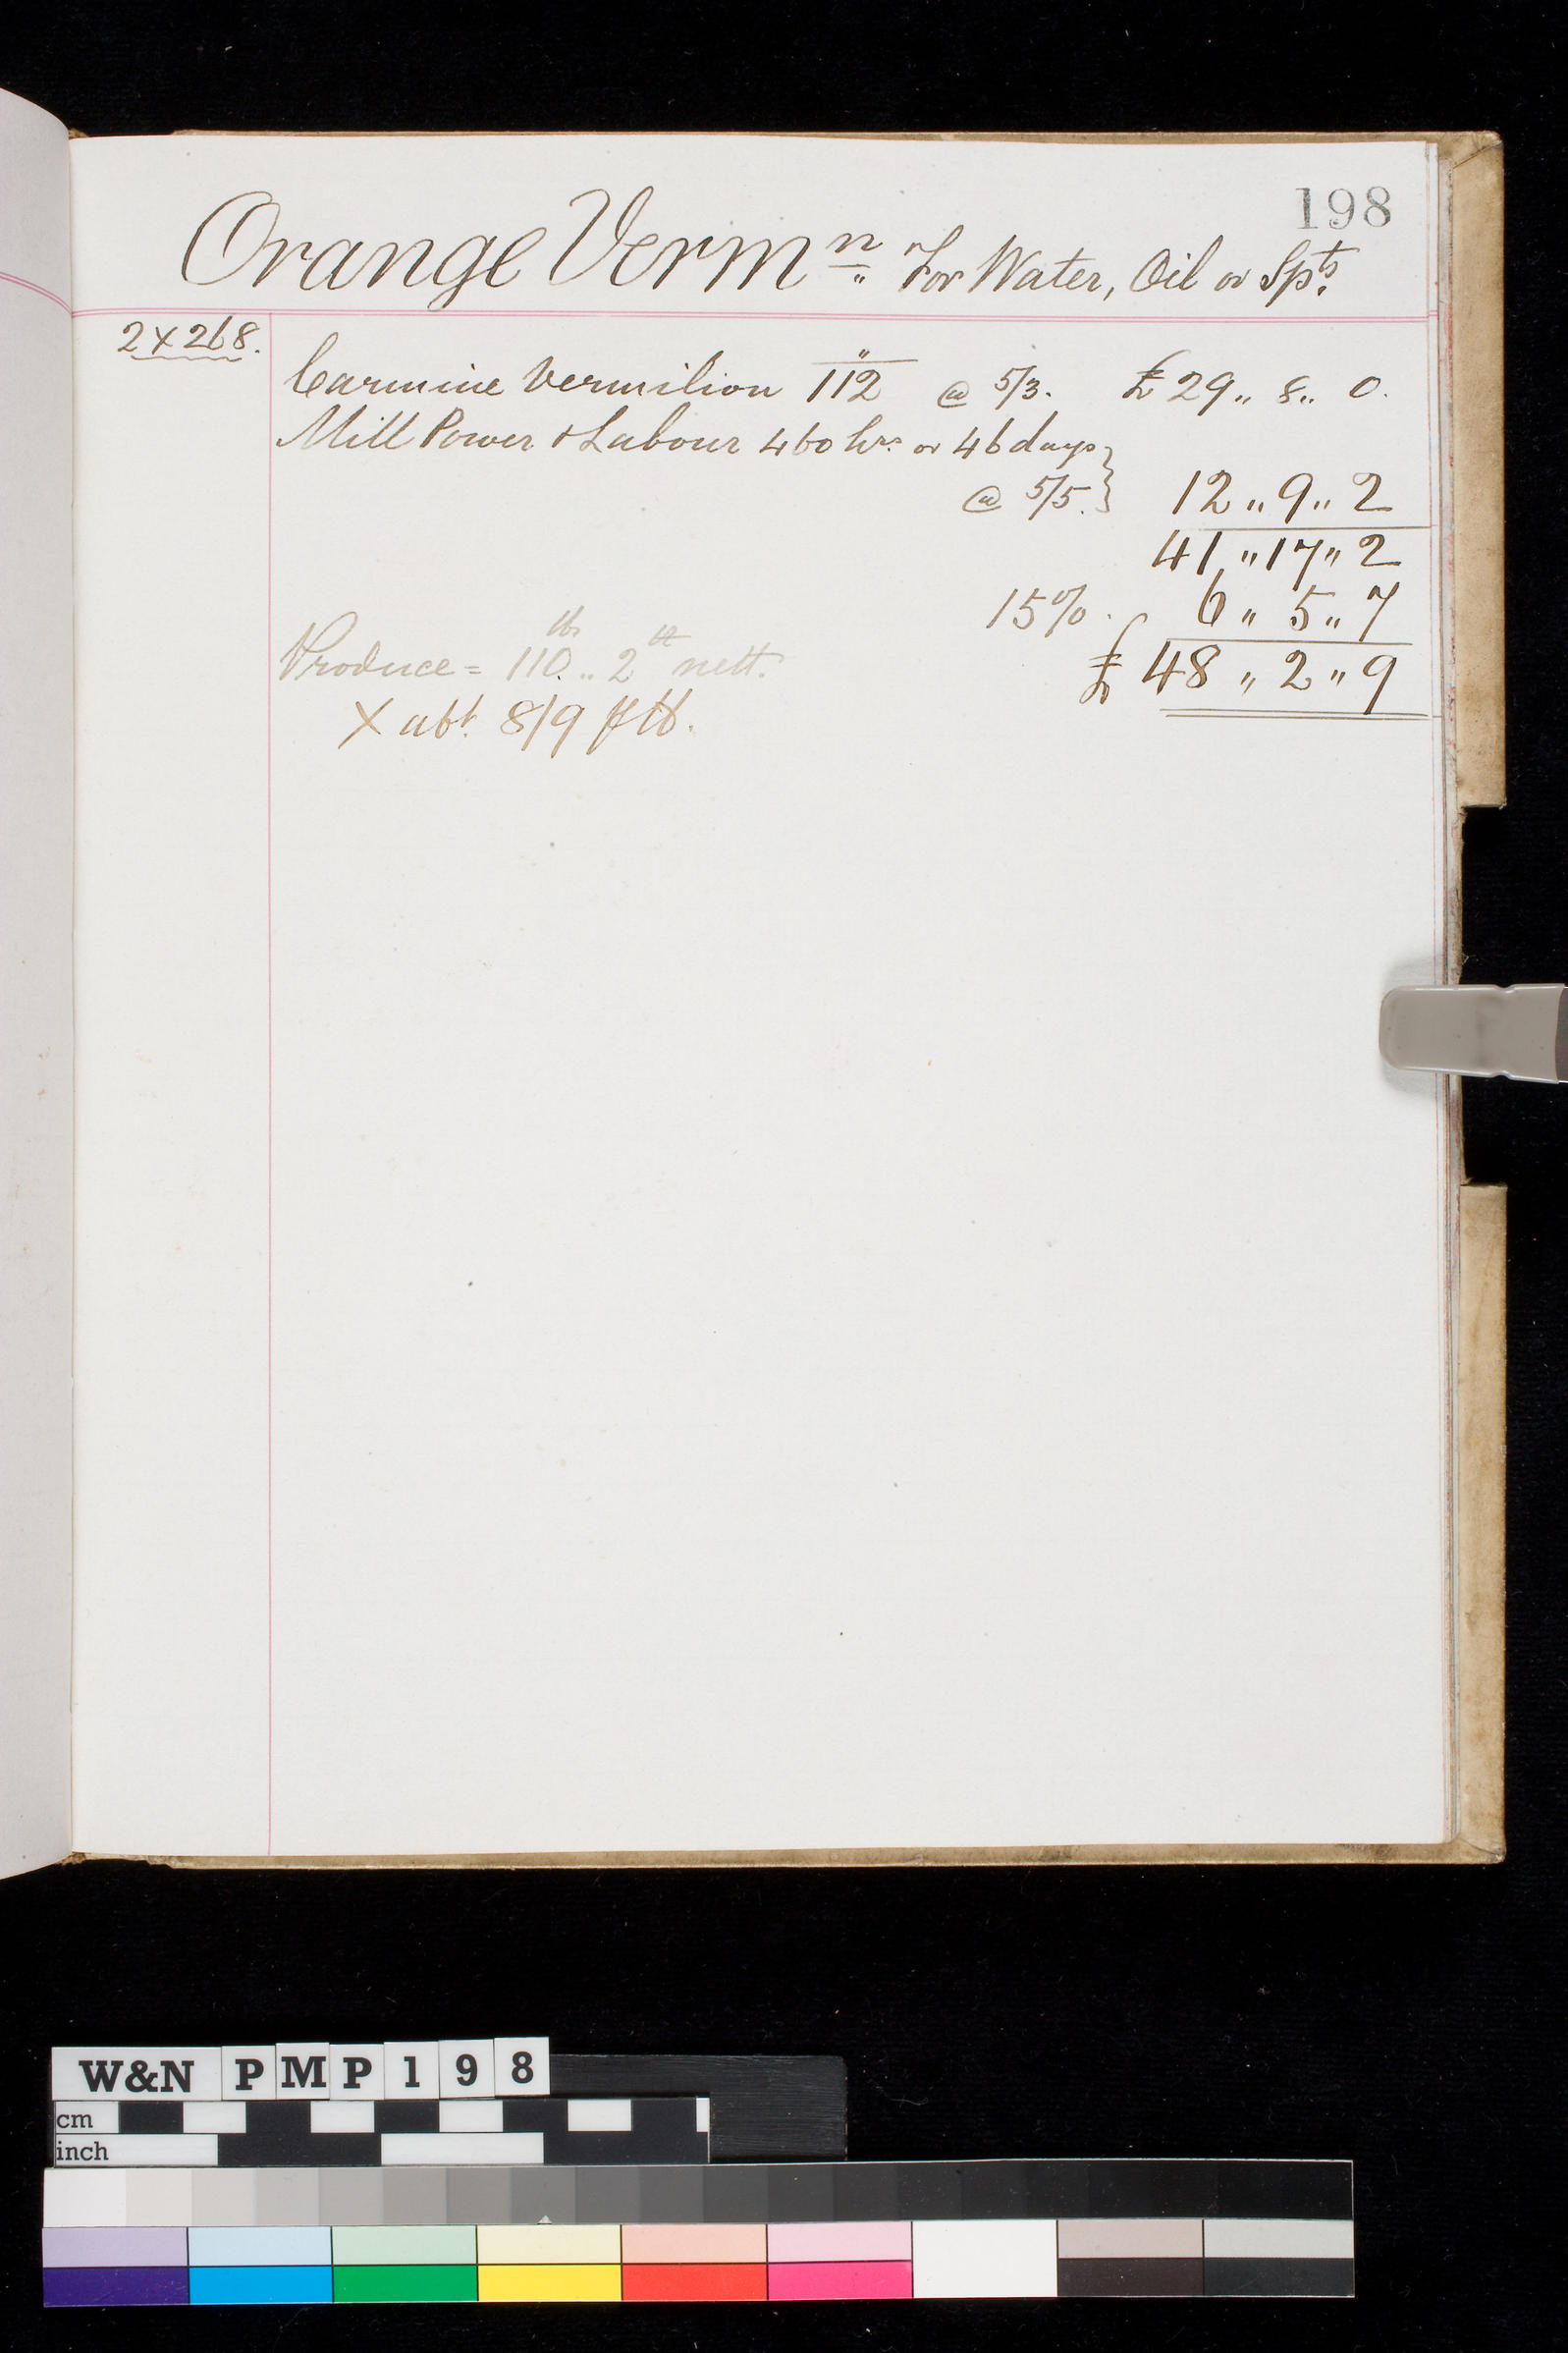 198
Orange Vermn. For Water, Oil or Spts.
2 X 268.
Carmine Vermilion 112 @ 5/3. £ 29 ,, 8 ,, 0.
Mill Power & Labour 460 hrs. or 46 days }
@ 5/5. } 12 ,, 9 ,, 2
41 ,, 17 ,, 2
15%. 6 ,, 5 ,, 7
Produce = 110 lbs. ,, 2 nett. £ 48 ,, 2 ,, 9
X abt. 8/9 ℔ lb.
W&N PMP198
cm
inch